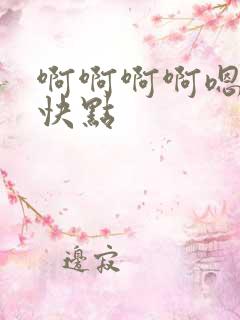 啊啊啊啊嗯
快點
邊寂